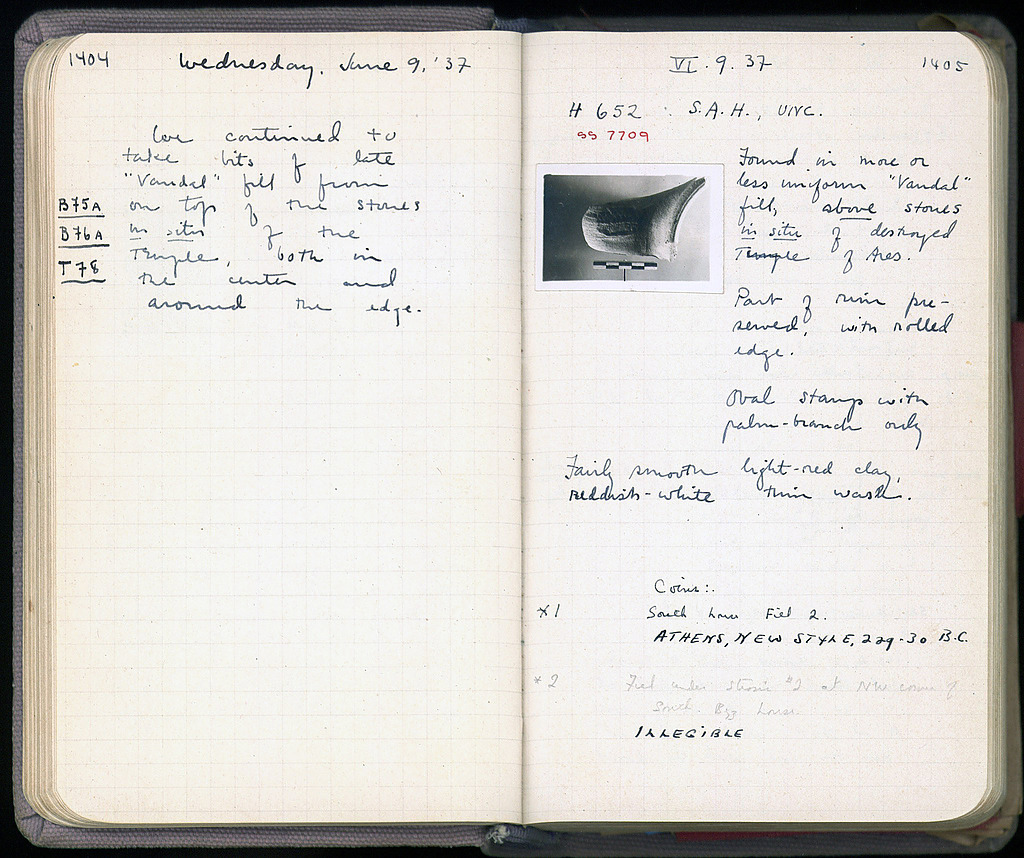 1404 Wednesday. June 9, '37
We continued to
take bits of late
"Vandal" fill from
B75A on top of the stones
B76A in situ of the
T78 Temple, both in
the center and
around the edge.
VI.9.37 1405
H 652 S.A.H., UNC.
SS 7709
Found in more or
less uniform "Vandal"
fill, above stones
in situ of destroyed
Temple of Ares.
Part of rim pre-
served, with rolled
edge.
Oval stamp with
palm-branch only
Fairly smooth light-red clay,
reddish-white thin wash.
Coins:
*1 South House Fill 2.
ATHENS, NEW STYLE, 229-30 B.C.
*2 Fill under Stosis #2 at NW corner of
South. Byz house.
ILLEGIBLE